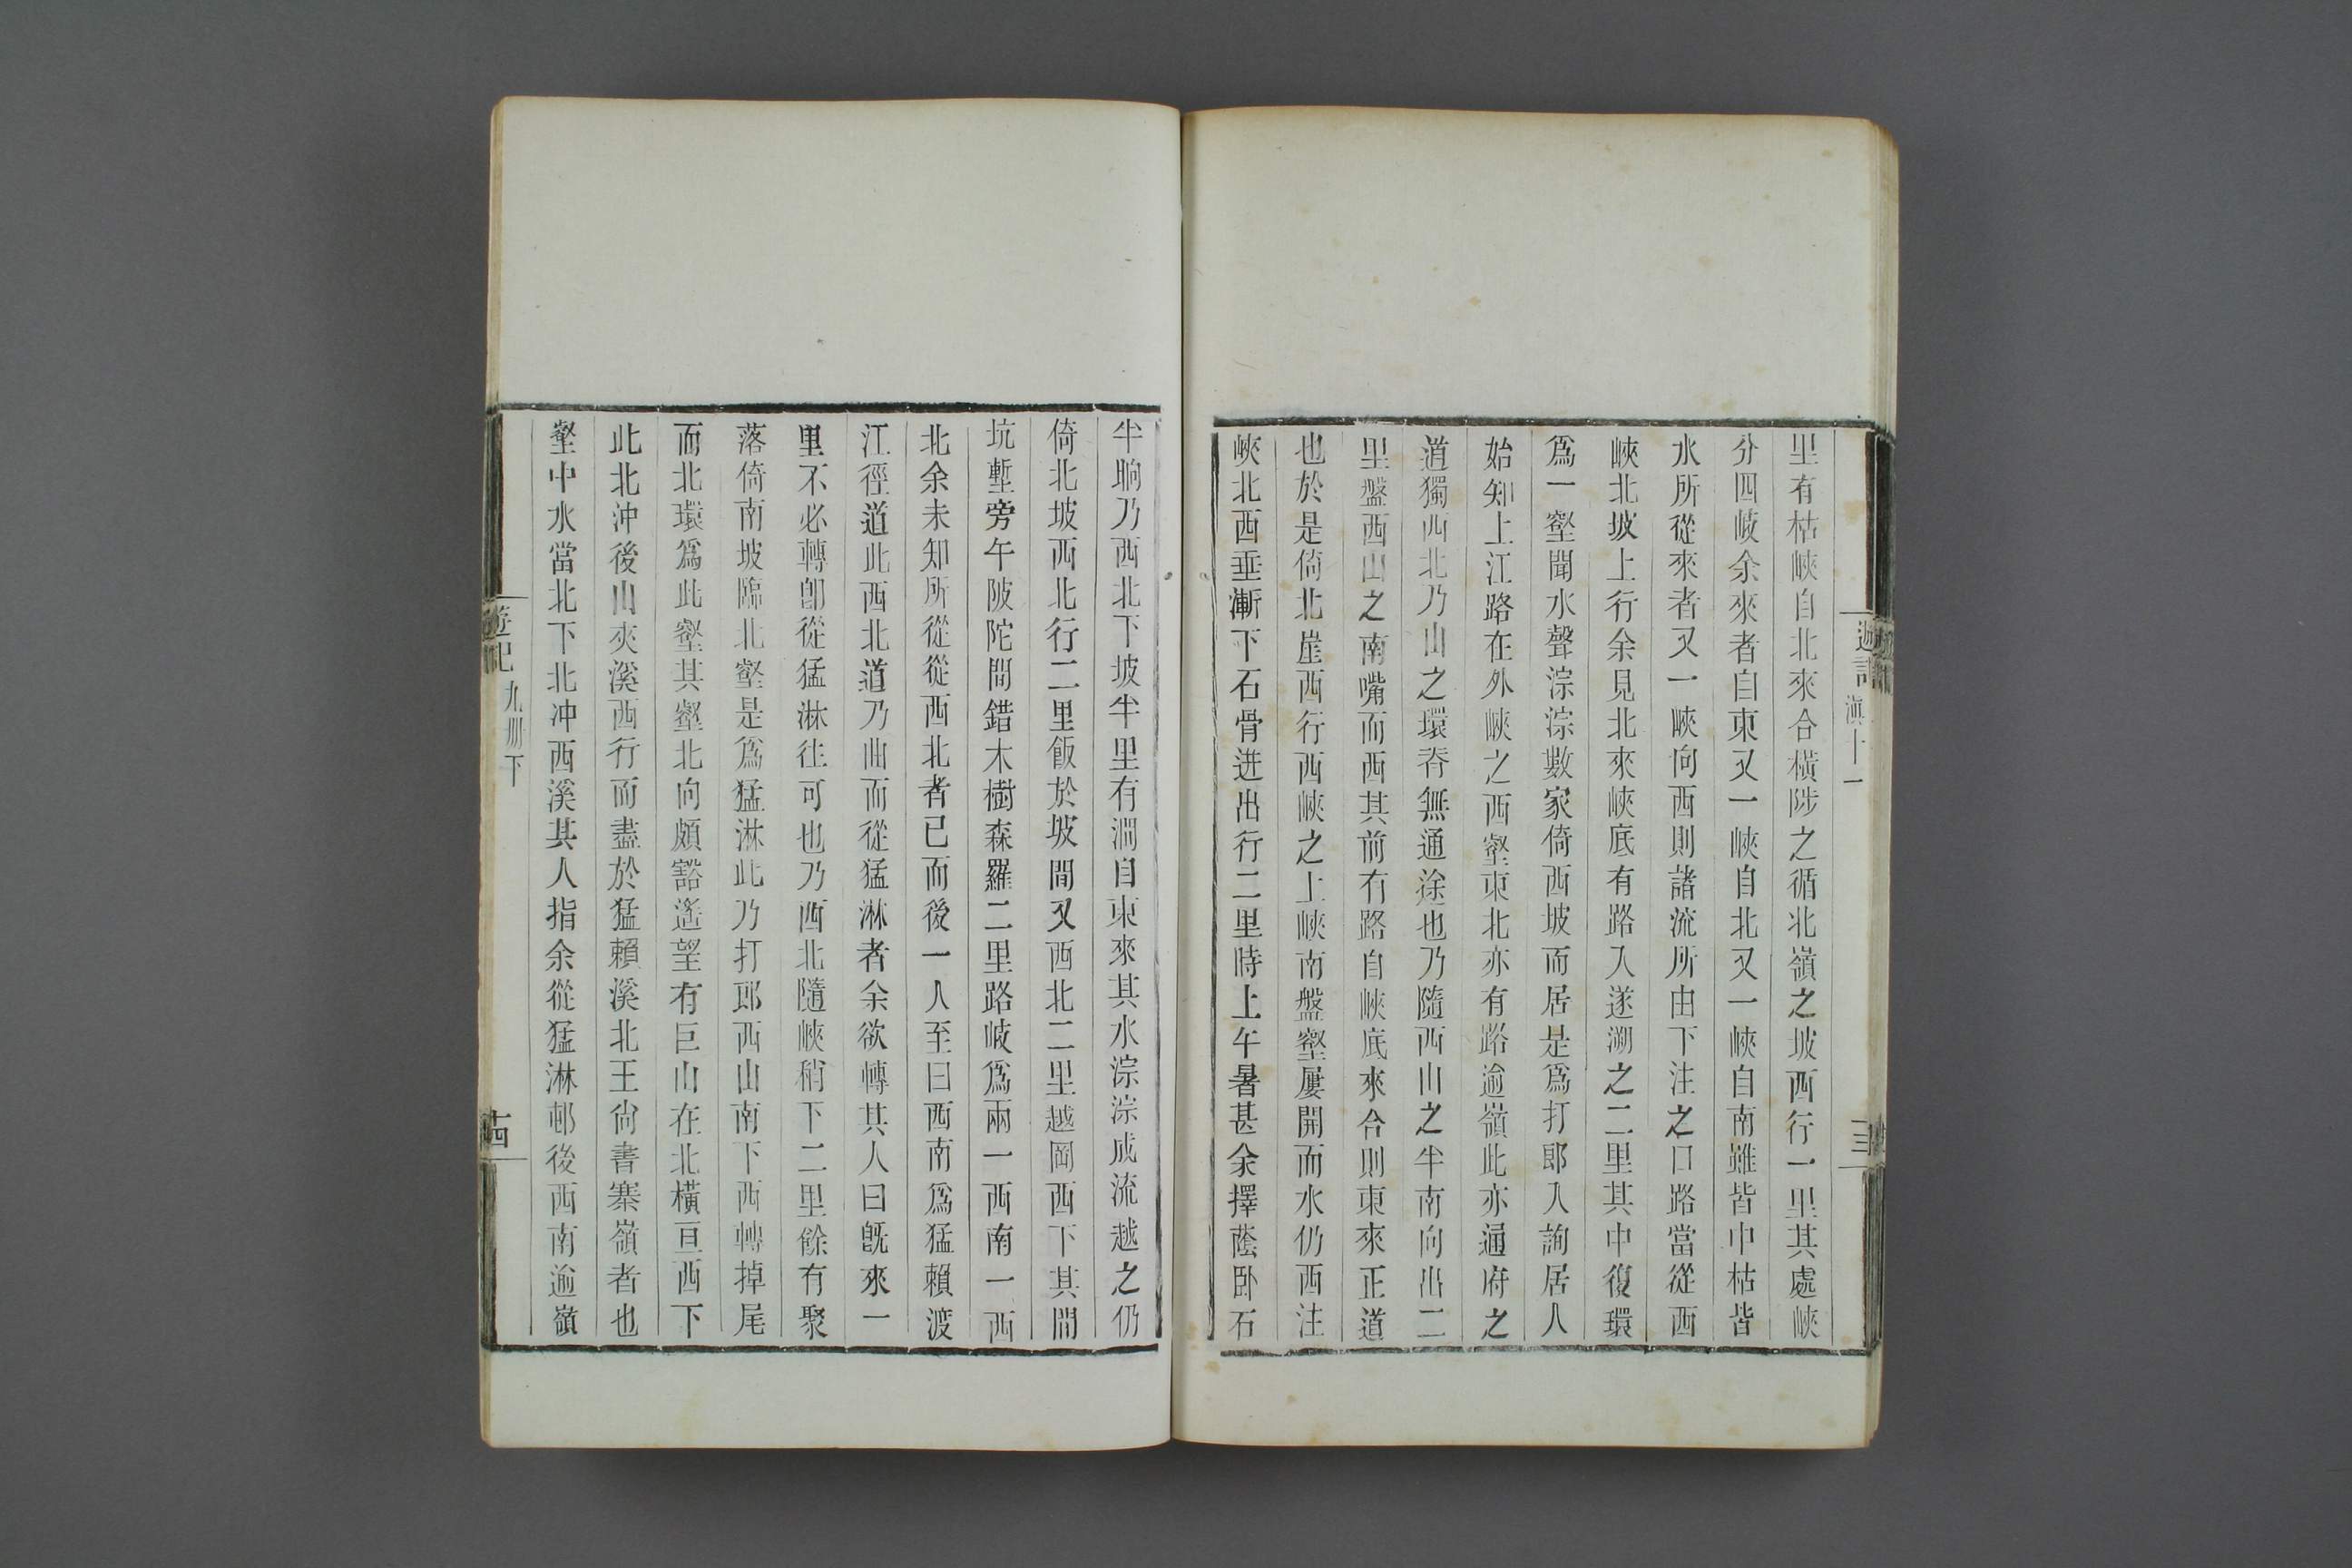 遊記
滇十一
里有枯峽自北來合橫陟之循北嶺之坡西行一里其處峽
分四岐余來者自東又一峽自北又一峽自南雖皆中枯皆
水所從來者又一峽向西則諸流所由下注之口路當從西
峽北坡上行余見北來峽底有路入遂溯之二里其中復環
爲一壑聞水聲淙淙數家倚西坡而居是爲打郎入詢居人
始知上江路在外峽之西壑東北亦有路逾嶺此亦通府之
道獨西北乃山之環脊無通途也乃隨西山之半南向出二
里盤西山之南嘴而西其前有路自峽底來合則東來正道
也於是倚北崖西行西峽之上峽南盤壑屢開而水仍西注
峽北西垂漸下石骨迸出行二里時上午暑甚余擇蔭臥石
半晌乃西北下坡半里有澗自東來其水淙淙成流越之仍
倚北坡西北行二里飯於坡間又西北二里越岡西下其間
坑塹旁午陂陀間錯木樹森羅二里路岐爲兩一西南一西
北余未知所從從西北者已而後一人至曰西南爲猛賴渡
江徑道此西北道乃曲而從猛淋者余欲轉其人曰旣來一
里不必轉卽從猛淋往可也乃西北隨峽稍下二里餘有聚
落倚南坡臨北壑是爲猛淋此乃打郎西山南下西轉掉尾
而北環爲此壑其壑北向頗豁遙望有巨山在北橫亘西下
此北沖後山夾溪西行而盡於猛賴溪北王尙書寨嶺者也
壑中水當北下北冲西溪其人指余從猛淋邨後西南逾嶺
遊記
九册下
十四